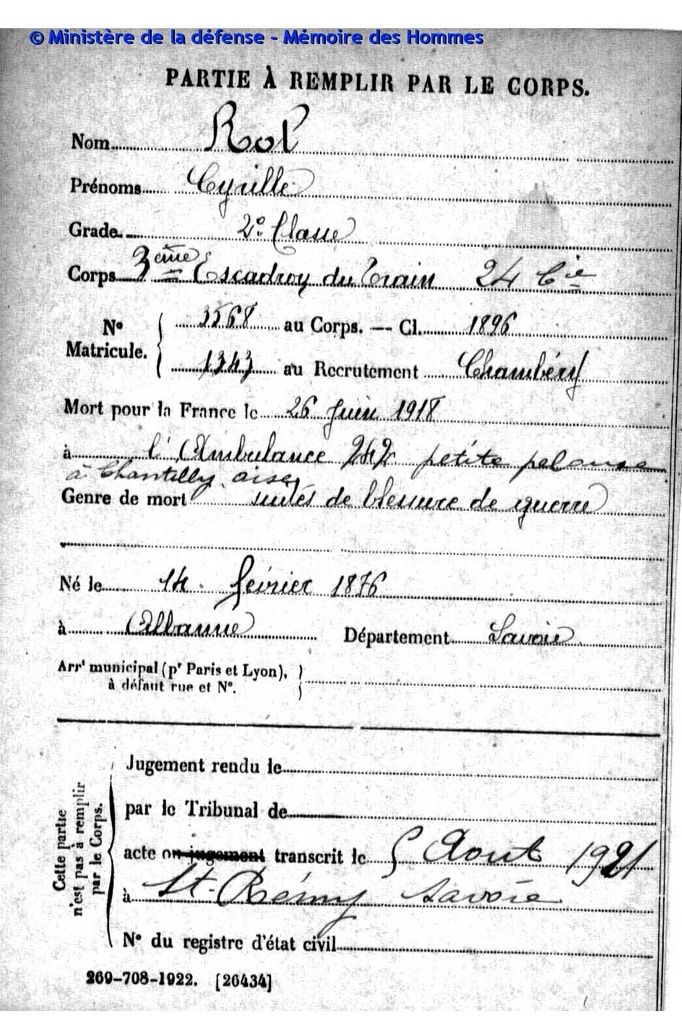 © Ministère de la défense - Mémoire des Hommes
PARTIE À REMPLIR PAR LE CORPS.
Nom Rol
Prénoms Cyrille
Grade 2e Classe
Corps 3ème Escadron du Train 24 Cie
No Matricule. 3568 au Corps. — Cl. 1896
1343 au Recrutement Chambéry
Mort pour la France le 26 Juin 1918
à l'Ambulance 242 petite pelouse
à Chantilly oise
Genre de mort suites de blessure de guerre
Né le 14 février 1876
à Albanne Département Savoie
Arrt municipal (pr Paris et Lyon),
à défaut rue et No.
Cette partie n'est pas à remplir par le Corps.
Jugement rendu le
par le Tribunal de
acte ou jugement transcrit le 5 Aout 1921
à St-Rémy Savoie
No du registre d'état civil
269-708-1922. [26434]